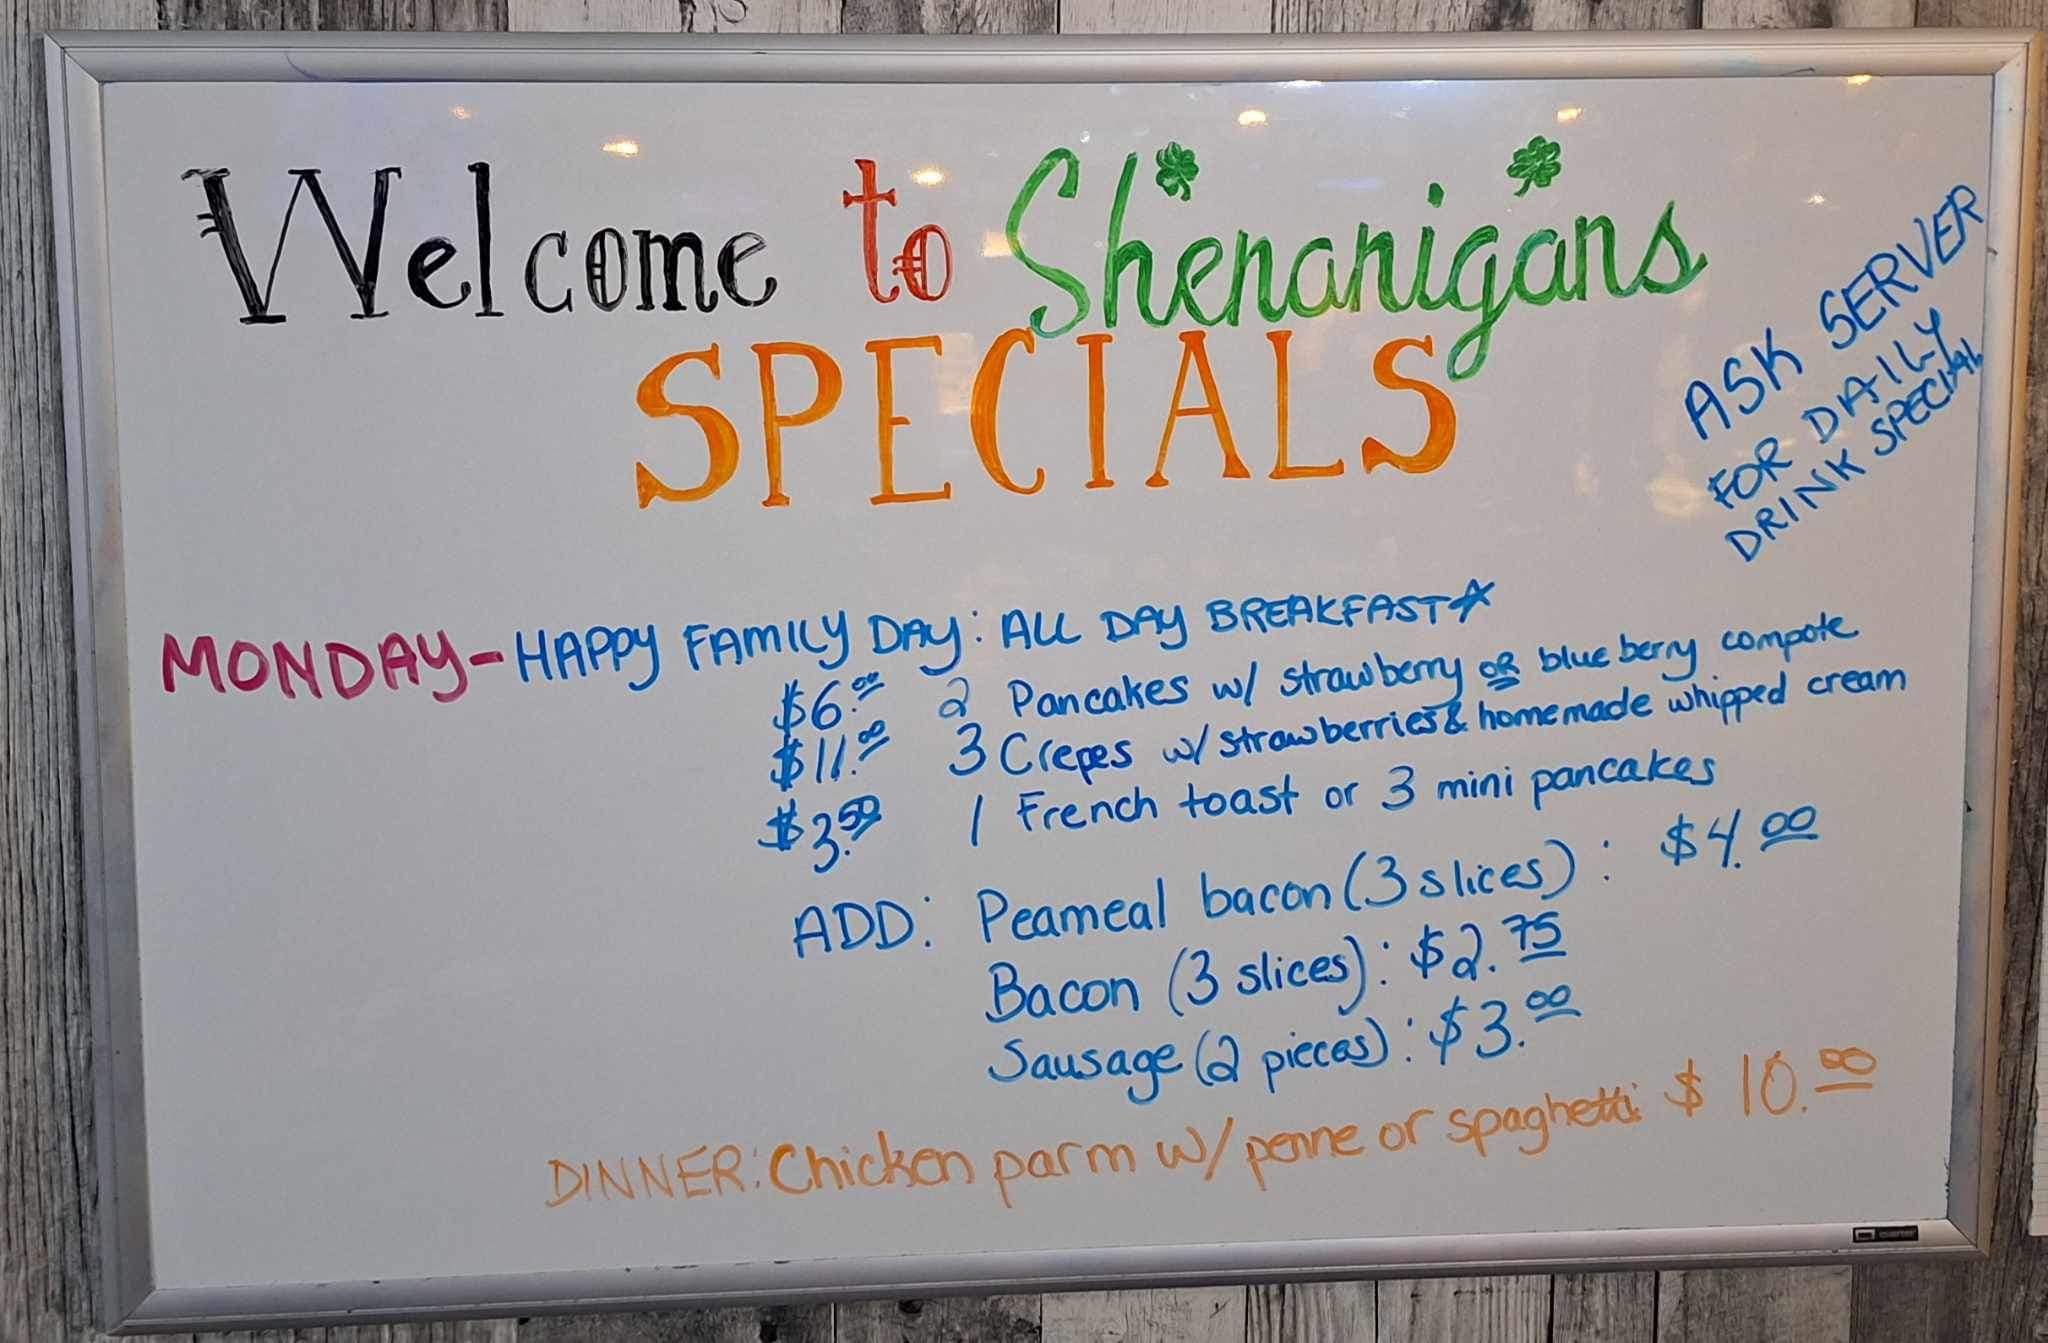 Welcome to Shenanigans
SPECIALS
ASK SERVER
FOR DAILY
DRINK SPECIAL
MONDAY-HAPPY FAMILY DAY: ALL DAY BREAKFAST☆
$6.00 2 Pancakes w/ strawberry OR blueberry compote
$11.00 3 Crepes w/ strawberries & homemade whipped cream
$3.50 1 French toast or 3 mini pancakes
ADD: Peameal bacon (3 slices): $4.00
Bacon (3 slices): $2.75
Sausage (2 pieces): $3.00
DINNER: Chicken parm w/ penne or spaghetti: $10.00